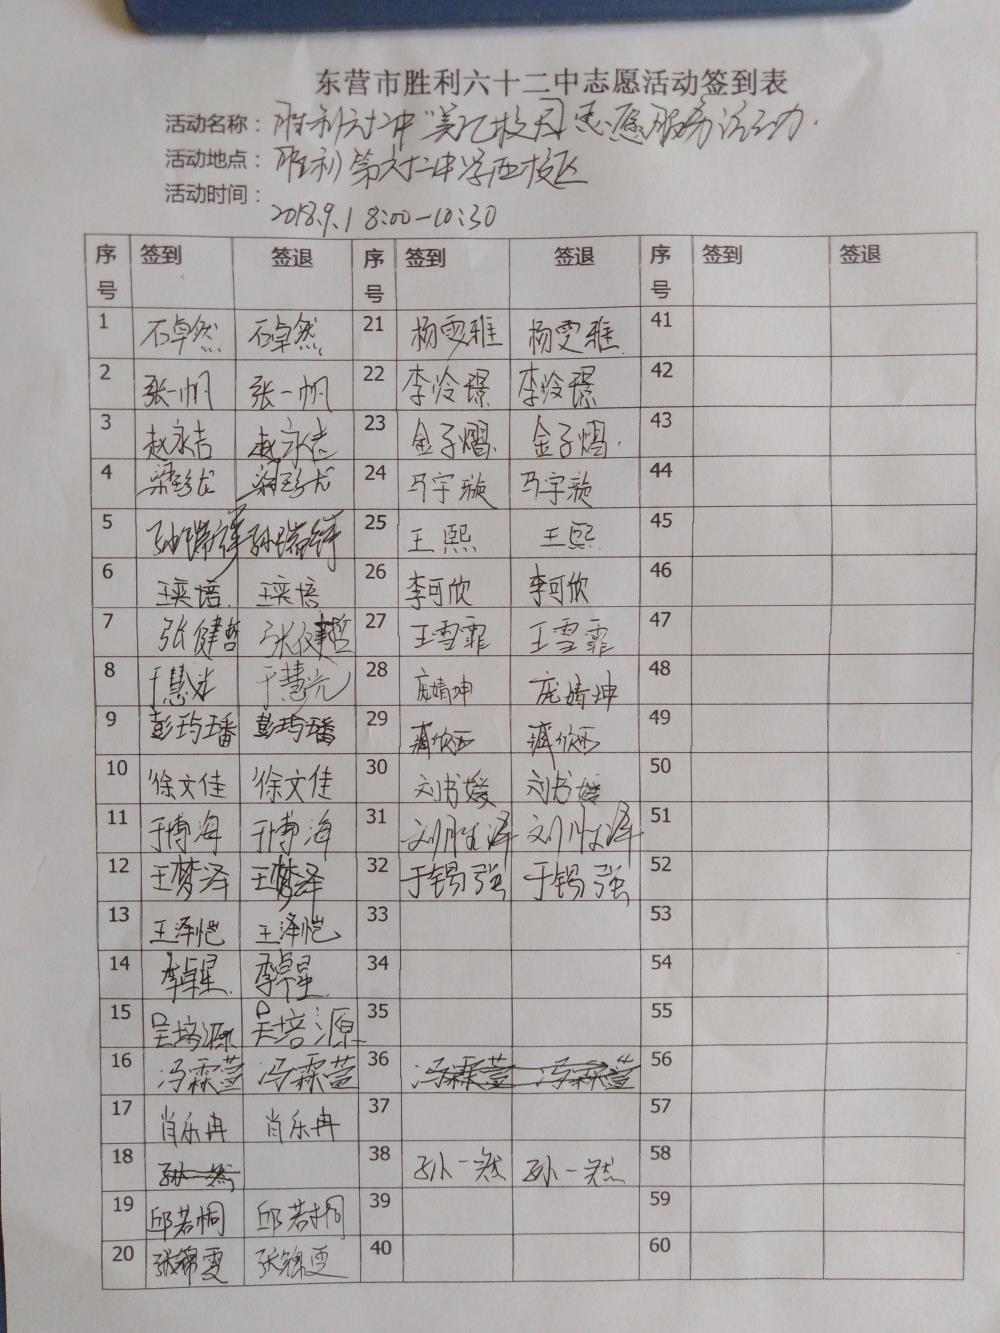 东营市胜利六十二中志愿活动签到表
活动名称：胜利六十二中"美化校园"志愿服务活动.
活动地点：胜利第六十二中学西校区
活动时间：
2018.9.1 8:00-10:30
序号 签到 签退 序号 签到 签退 序号 签到 签退
1 石卓然 石卓然 21 杨雯雅 杨雯雅 41
2 张一帆 张一帆 22 李怜璟 李怜璟 42
3 赵永吉 赵永吉 23 金子熠 金子熠 43
4 梁珍龙 梁珍龙 24 马宇漩 马宇漩 44
5 孙瑞 孙瑞 25 王熙 王熙 45
6 王奕培 王奕培 26 李可欣 李可欣 46
7 张健哲 张健哲 27 王雪霏 王雪霏 47
8 于慧光 于慧光 28 庞婧坤 庞婧坤 48
9 彭玙璠 彭玙璠 29 蒋欣西 蒋欣西 49
10 徐文佳 徐文佳 30 刘书媛 刘书媛 50
11 于博海 于博海 31 刘胜泽 刘胜泽 51
12 王梦泽 王梦泽 32 于锡强 于锡强 52
13 王泽恺 王泽恺 33 53
14 李卓星 李卓星 34 54
15 吴培源 吴培源 35 55
16 冯霖萱 冯霖萱 36 冯霖萱 冯霖萱 56
17 肖乐冉 肖乐冉 37 57
18 孙一然 38 孙一然 孙一然 58
19 邱若桐 邱若桐 39 59
20 张锦雯 张锦雯 40 60